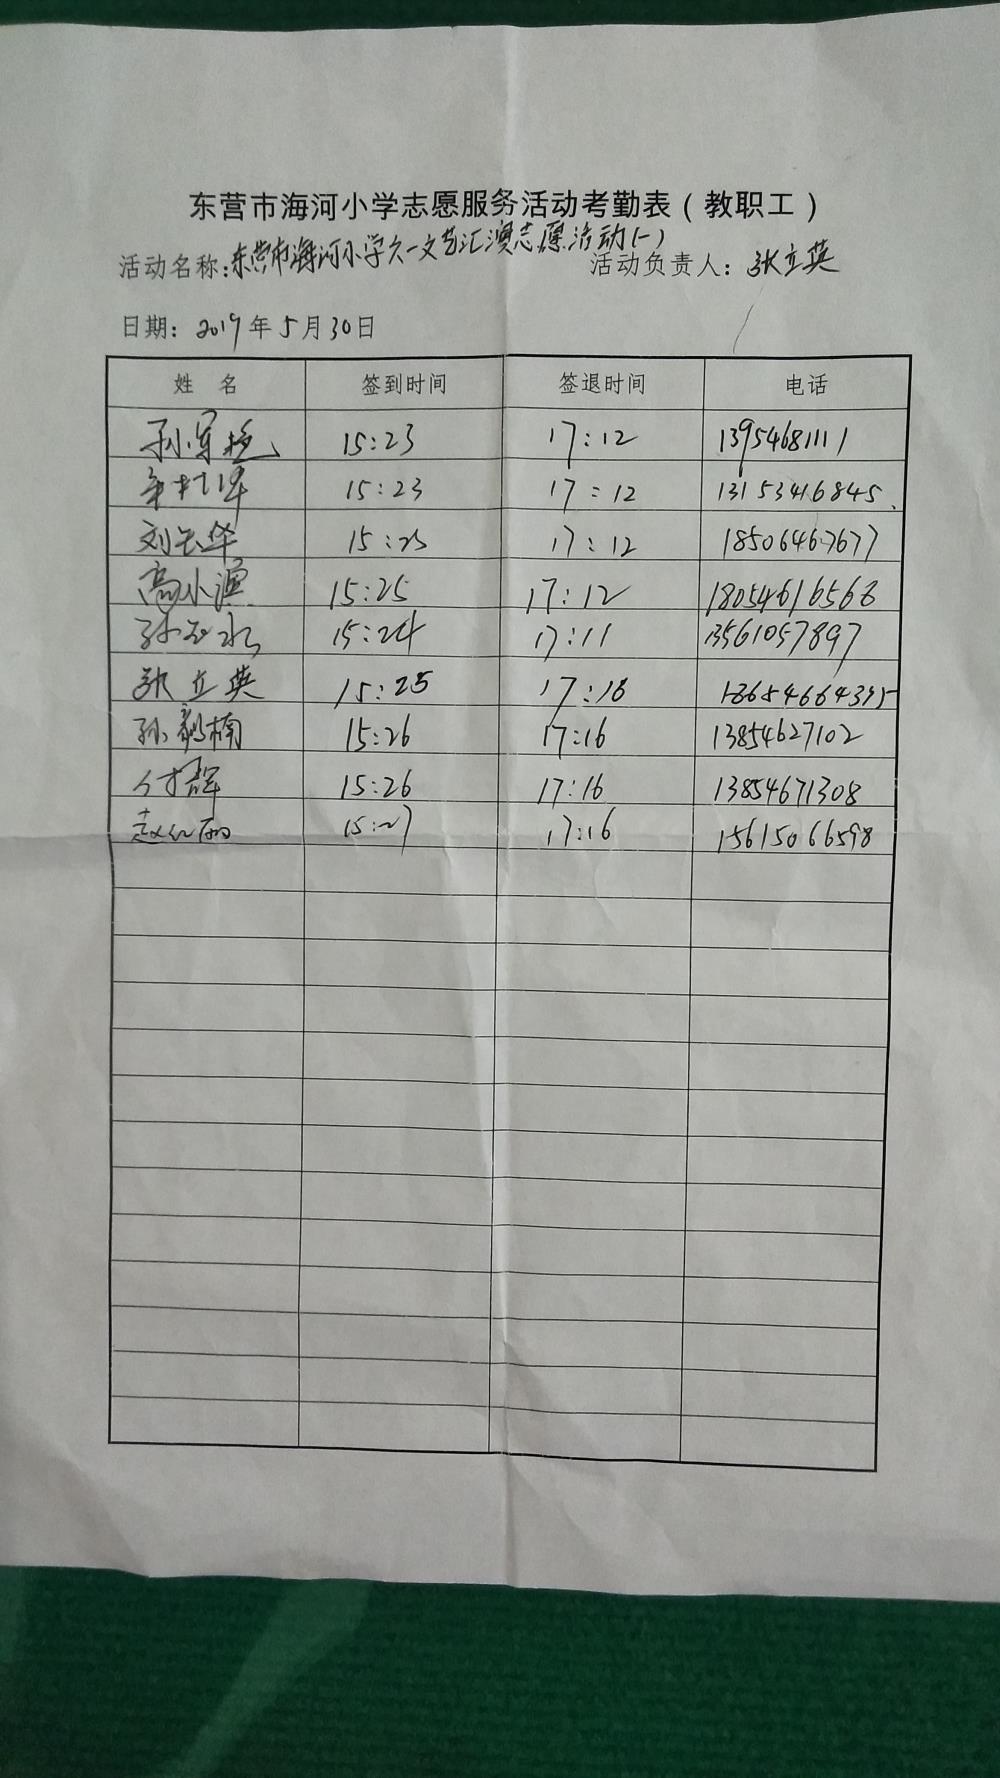 东营市海河小学志愿服务活动考勤表（教职工）
活动名称：东营市海河小学六一文艺汇演志愿活动(一) 活动负责人：张立英
日期：2019年5月30日
姓名 签到时间 签退时间 电话
孙军艳 15:23 17:12 13954681111
15:23 17:12 13153416845
刘玉华 15:25 17:12 18506467677
高小渔 15:25 17:12 18054616566
孙玉水 15:24 17:11 13561057897
张立英 15:25 17:16 18654664395
孙毅楠 15:26 17:16 13854627102
付辉 15:26 17:16 13854671308
赵红丽 15:27 17:16 15615066598